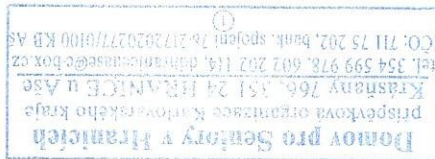 Domov pro Seniory v Hranicích
příspěvková organizace Karlovarského kraje
Krásňany 766, 351 24 HRANICE u Aše
tel. 354 599 978, 602 202 114, ddhraniceuase@c-box.cz
IČO: 711 75 202, bank. spojení 78-2172020277/0100 KB Aš
①